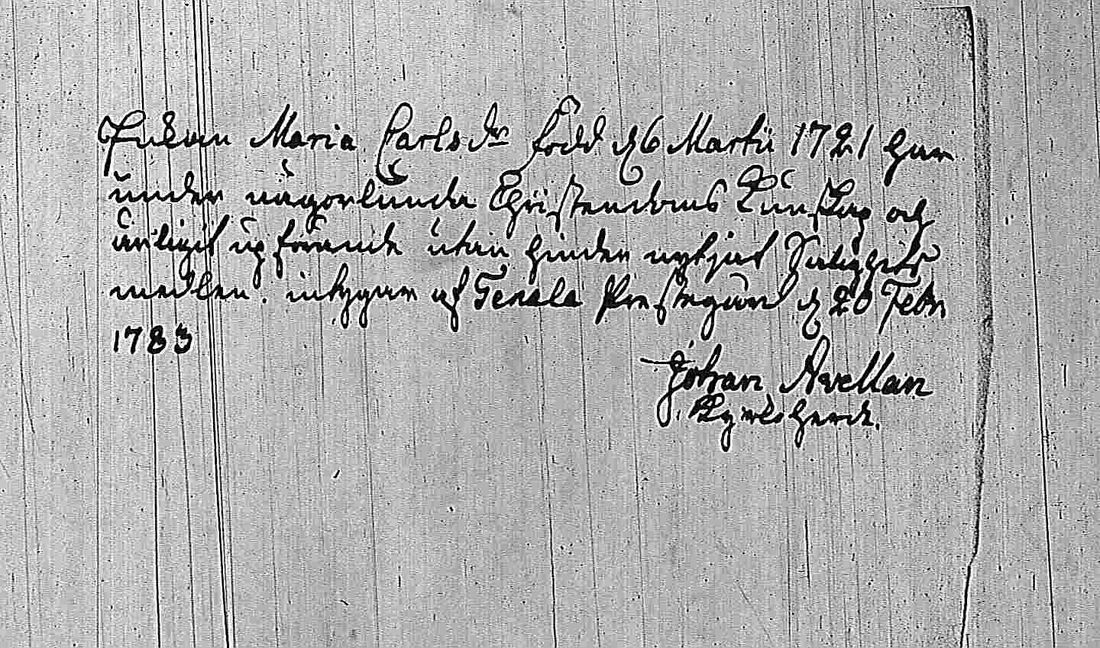 Enkan Maria Carls dr född d 6 Martii 1721 har
under någorlunda Christendoms Kunskap och
ärligit upförande utan hinder nytjat Salighets
medlen. intygar af Tenala Prestegård d 20 Febr
1783
Johan Avellan
Kyrkoherde.